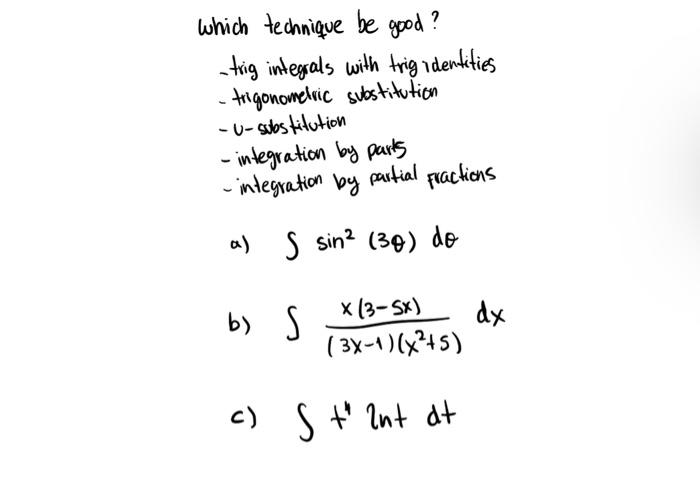 Which technique be good?
- trig integrals with trig identities
- trigonometric substitution
- u-substitution
- integration by parts
- integration by partial fractions
a) ∫ sin² (3θ) dθ
b) ∫ x(3-5x) / (3x-1)(x²+5) dx
c) ∫ t⁴ lnt dt